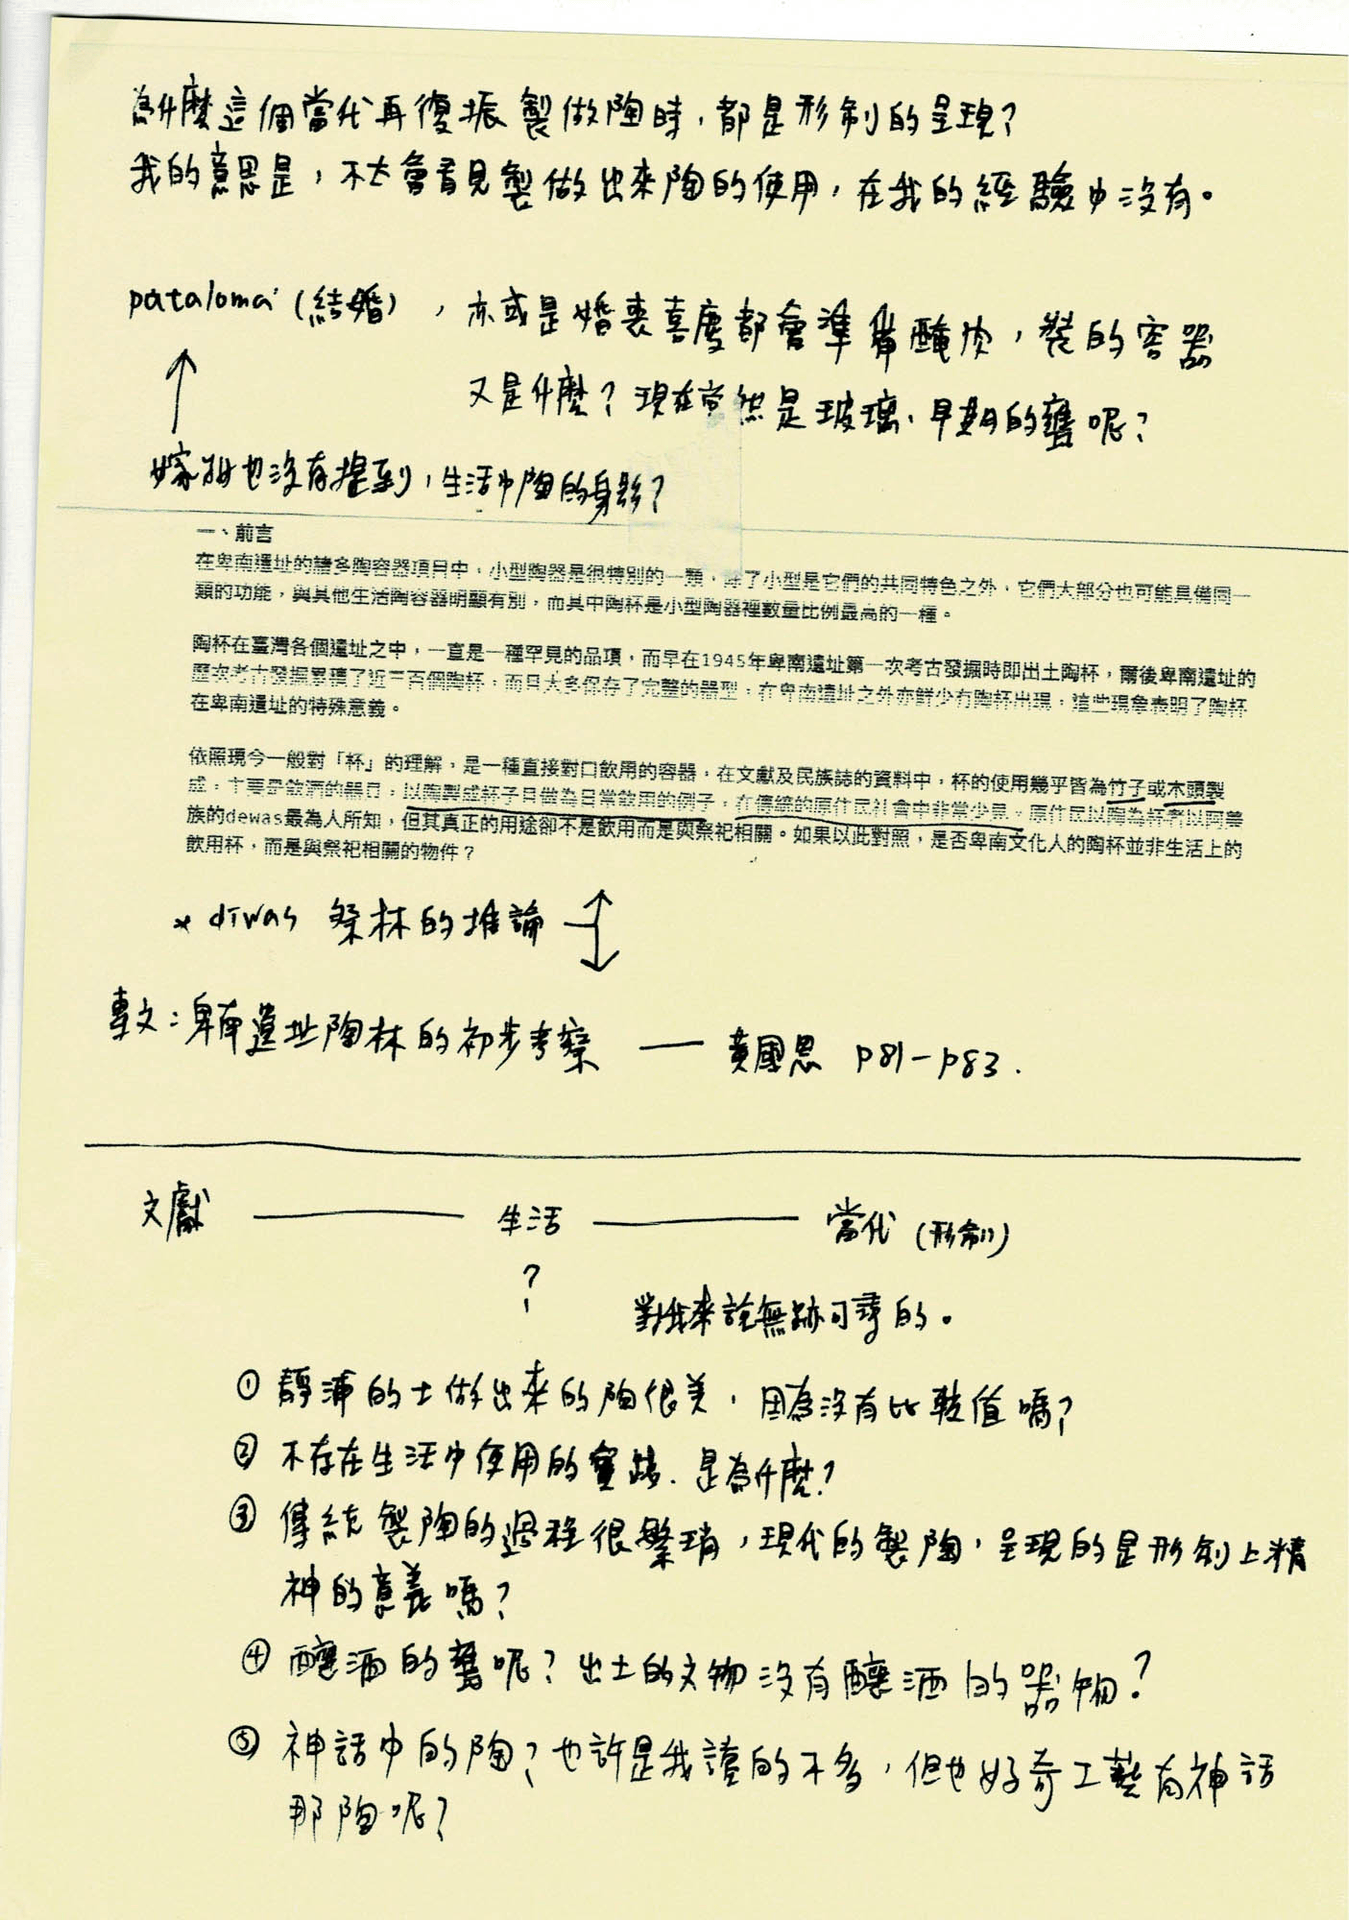 為什麼這個當代再復振製做陶時，都是形制的呈現？
我的意思是，不太會看見製做出來陶的使用，在我的經驗中沒有。
pataloma'(結婚)，亦或是婚喪喜慶都會準備醃肉，裝的容器
又是什麼？現在當然是玻璃、早期的甕呢？
嫁妝也沒有提到，生活中陶的身影？
一、前言
在卑南遺址的諸多陶容器項目中，小型陶器是很特別的一類，除了小型是它們的共同特色之外，它們大部分也可能具備同一
類的功能，與其他生活陶容器明顯有別，而其中陶杯是小型陶器裡數量比例最高的一種。
陶杯在臺灣各個遺址之中，一直是一種罕見的品項，而早在1945年卑南遺址第一次考古發掘時即出土陶杯，爾後卑南遺址的
歷次考古發掘累積了近三百個陶杯，而且大多保存了完整的器型，在卑南遺址之外亦鮮少有陶杯出現，這些現象表明了陶杯
在卑南遺址的特殊意義。
依照現今一般對「杯」的理解，是一種直接對口飲用的容器，在文獻及民族誌的資料中，杯的使用幾乎皆為竹子或木頭製
成，主要是飲酒的器具，以陶製成杯子且做為日常飲用的例子，在傳統的原住民社會中非常少見。原住民以陶為杯者以阿美
族的dewas最為人所知，但其真正的用途卻不是飲用而是與祭祀相關。如果以此對照，是否卑南文化人的陶杯並非生活上的
飲用杯，而是與祭祀相關的物件？
* diwas 祭杯的推論
專文：卑南遺址陶杯的初步考察 — 黃國恩 p81-p83.
文獻 — 生活 — 當代 (形制)
？ 對我來說無跡可尋的。
① 靜浦的土做出來的陶很美，因為沒有比較值嗎？
② 不存在生活中使用的實踐、是為什麼？
③ 傳統製陶的過程很繁瑣，現代的製陶，呈現的是形制上精
神的意義嗎？
④ 釀酒的甕呢？出土的文物沒有釀酒的器物？
⑤ 神話中的陶？也許是我讀的不多，但也好奇工藝有神話
那陶呢？